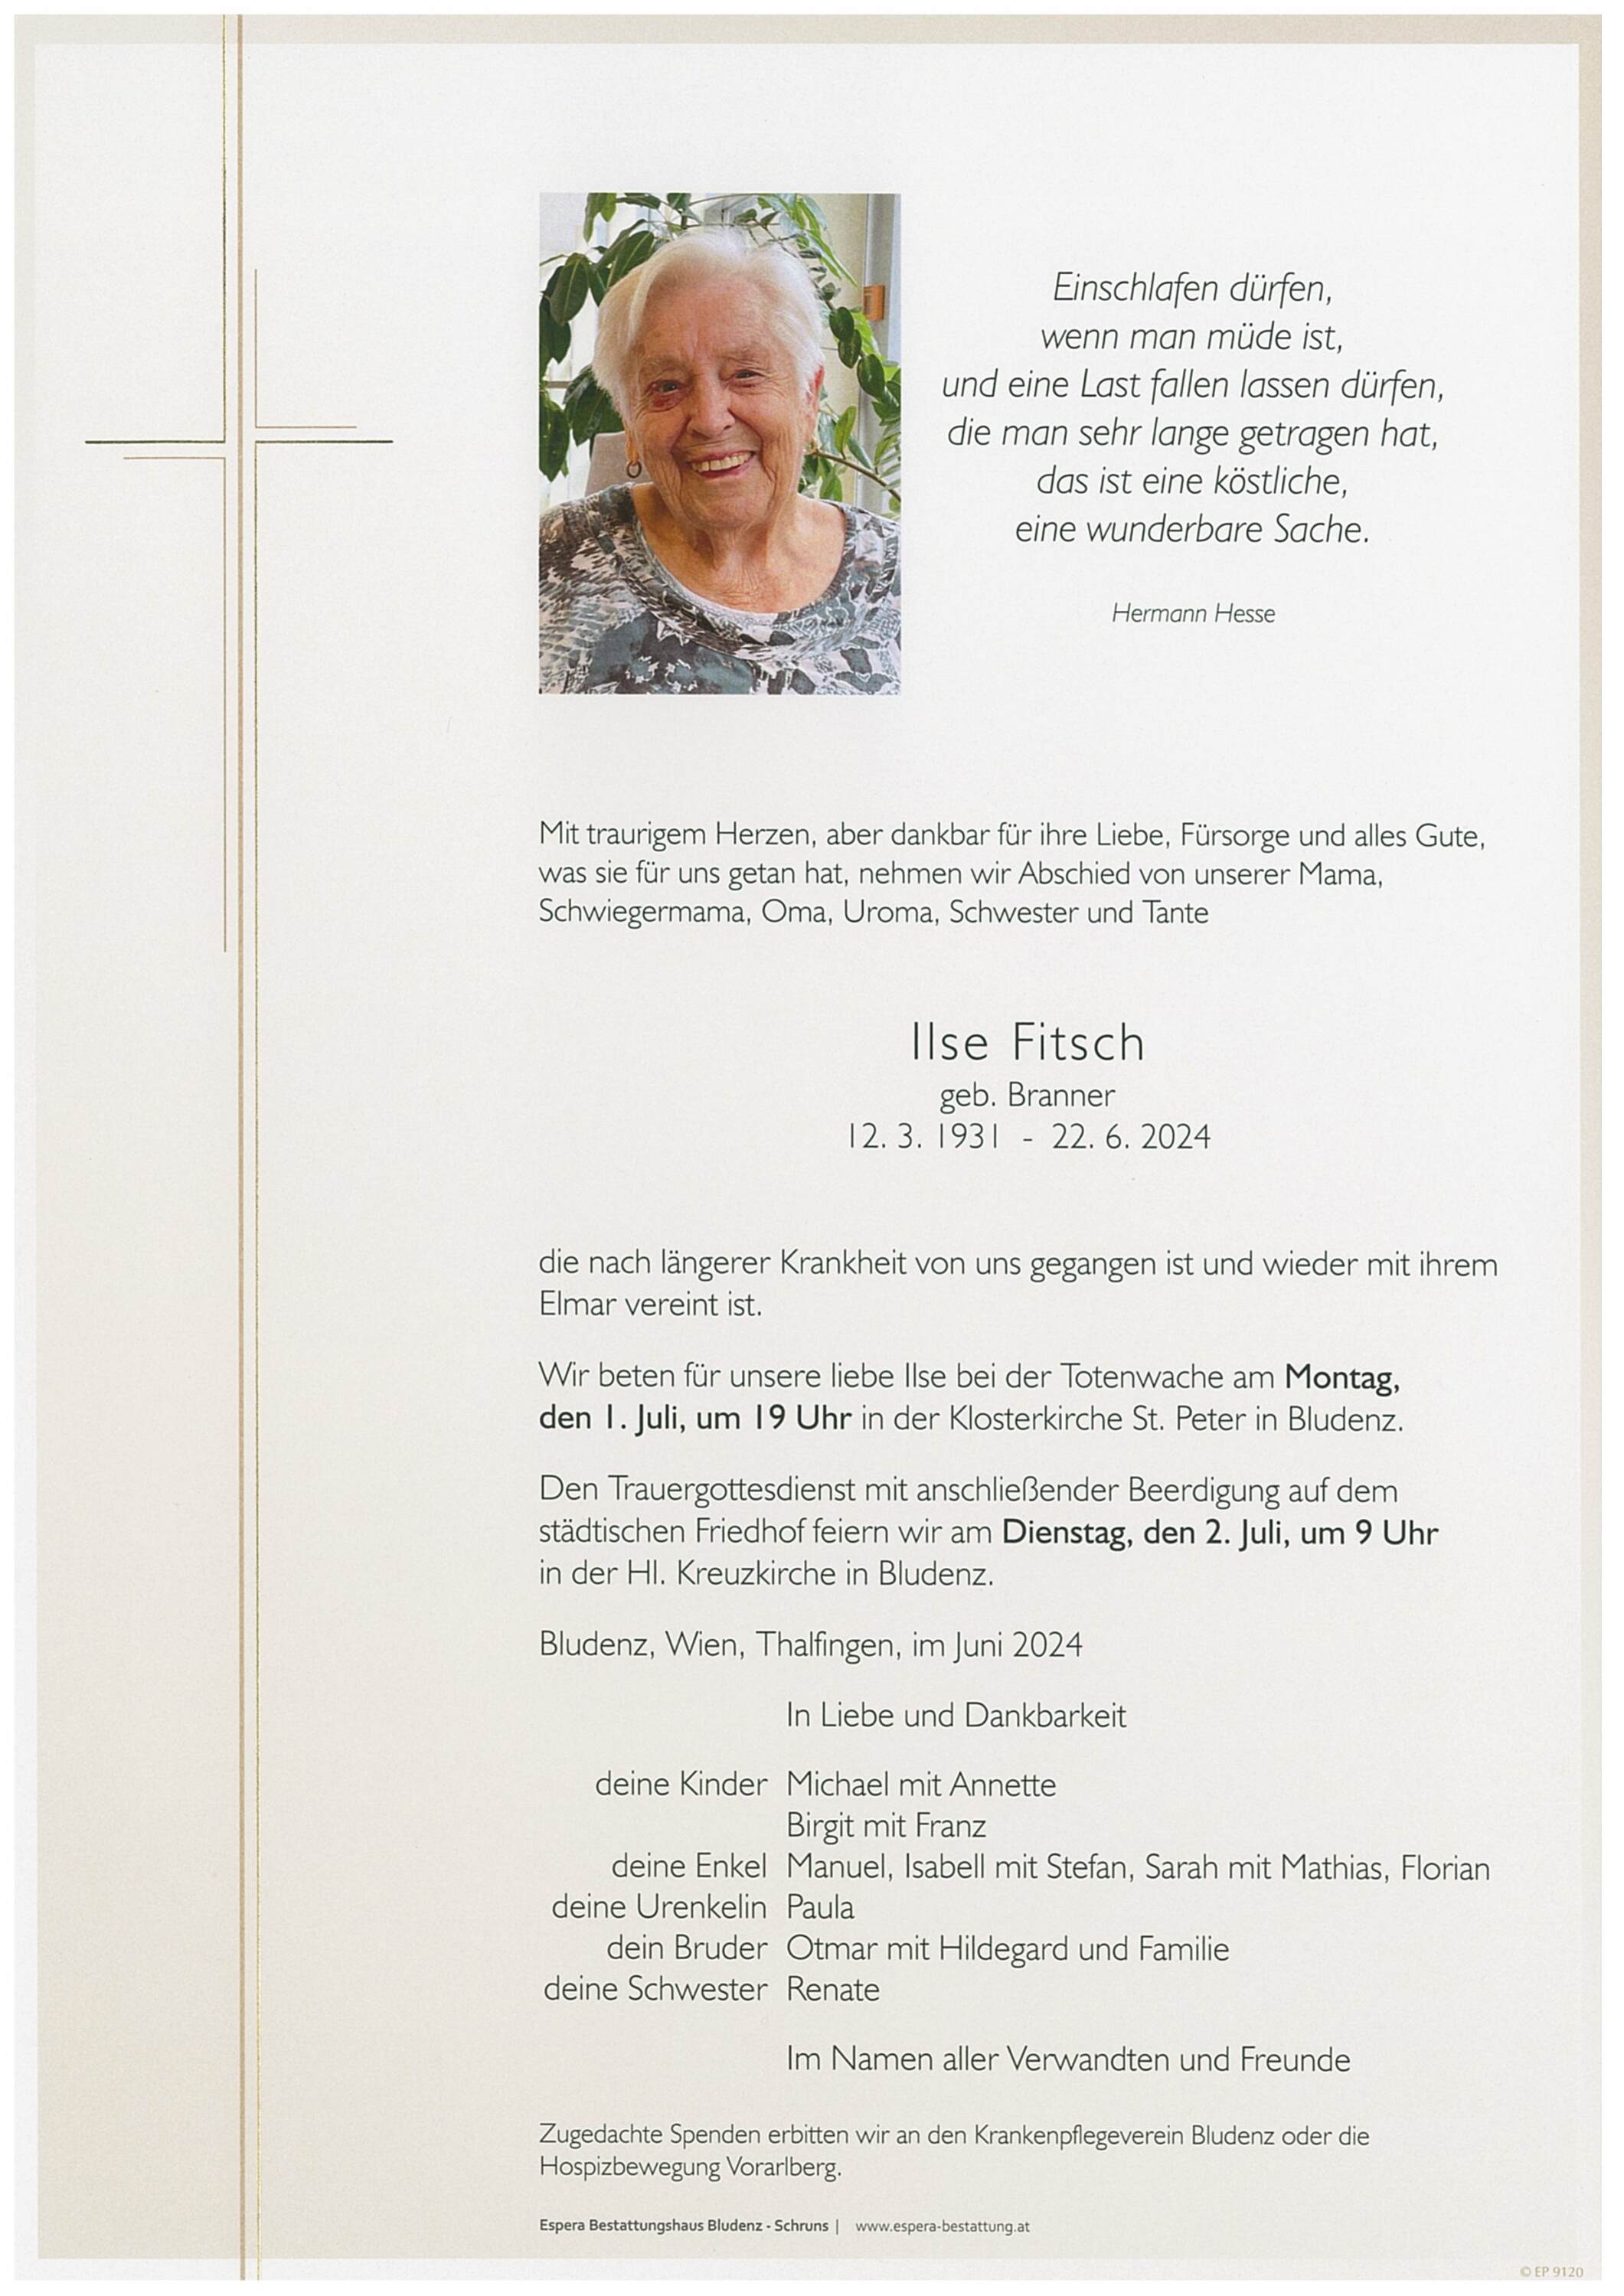 Einschlafen dürfen,
wenn man müde ist,
und eine Last fallen lassen dürfen,
die man sehr lange getragen hat,
das ist eine köstliche,
eine wunderbare Sache.
Hermann Hesse
Mit traurigem Herzen, aber dankbar für ihre Liebe, Fürsorge und alles Gute,
was sie für uns getan hat, nehmen wir Abschied von unserer Mama,
Schwiegermama, Oma, Uroma, Schwester und Tante
Ilse Fitsch
geb. Branner
12. 3. 1931 - 22. 6. 2024
die nach längerer Krankheit von uns gegangen ist und wieder mit ihrem
Elmar vereint ist.
Wir beten für unsere liebe Ilse bei der Totenwache am Montag,
den 1. Juli, um 19 Uhr in der Klosterkirche St. Peter in Bludenz.
Den Trauergottesdienst mit anschließender Beerdigung auf dem
städtischen Friedhof feiern wir am Dienstag, den 2. Juli, um 9 Uhr
in der Hl. Kreuzkirche in Bludenz.
Bludenz, Wien, Thalfingen, im Juni 2024
In Liebe und Dankbarkeit
deine Kinder Michael mit Annette
Birgit mit Franz
deine Enkel Manuel, Isabell mit Stefan, Sarah mit Mathias, Florian
deine Urenkelin Paula
dein Bruder Otmar mit Hildegard und Familie
deine Schwester Renate
Im Namen aller Verwandten und Freunde
Zugedachte Spenden erbitten wir an den Krankenpflegeverein Bludenz oder die
Hospizbewegung Vorarlberg.
Espera Bestattungshaus Bludenz - Schruns | www.espera-bestattung.at
© EP 9120